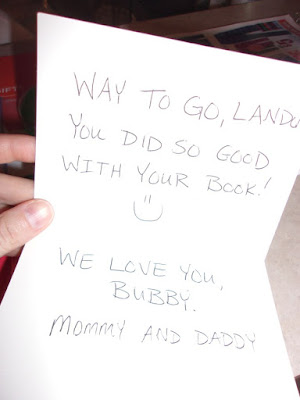 WAY TO GO, LANDO
YOU DID SO GOOD
WITH YOUR BOOK!
WE LOVE YOU,
BUBBY.
MOMMY AND DADDY